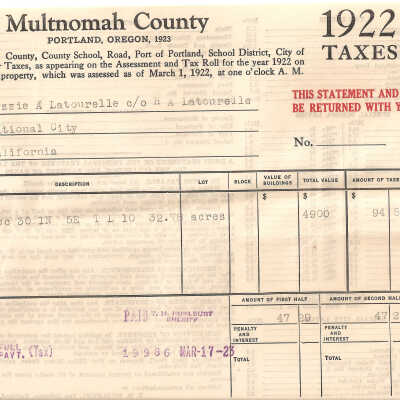 Multnomah County
PORTLAND, OREGON, 1923
1922
TAXES
County, County School, Road, Port of Portland, School District, City of
Taxes, as appearing on the Assessment and Tax Roll for the year 1922 on
property, which was assessed as of March 1, 1922, at one o'clock A. M.
THIS STATEMENT AND
BE RETURNED WITH Y
ssie A Latourelle c/o H A Latourelle
ational City
alifornia
No.
DESCRIPTION LOT BLOCK VALUE OF BUILDINGS TOTAL VALUE AMOUNT OF TAXES
$ $ $
c 30 1N 5E T L 10 32.78 acres 4900 94 5
AMOUNT OF FIRST HALF AMOUNT OF SECOND HALF
PAID T. M. HURLBURT 47 29 47 2
SHERIFF
PENALTY AND INTEREST PENALTY AND INTEREST
FULL
PAYT. (Tax) 19986 MAR-17-23
TOTAL TOTAL